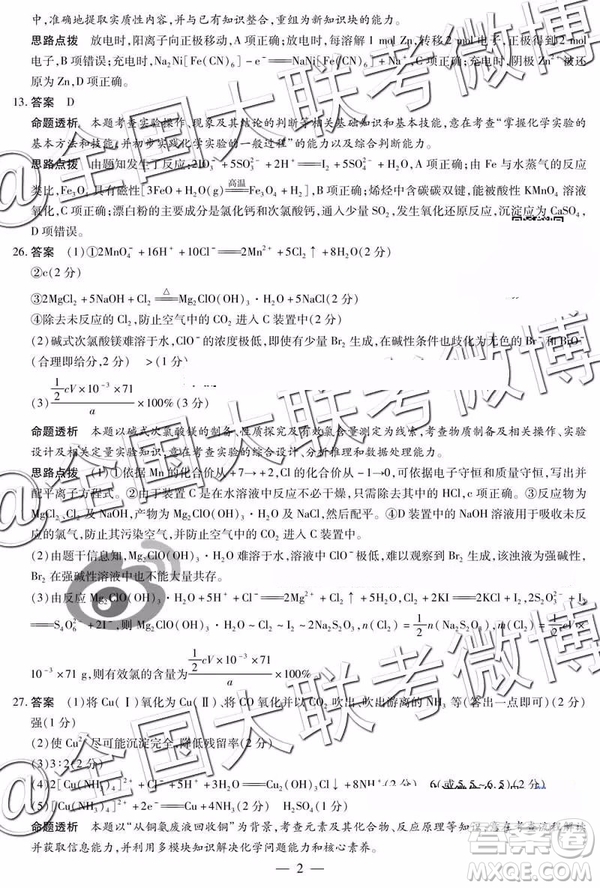 中,准确地提取实质性内容,并与已有知识整合,重组为新知识块的能力。
思路点拨 放电时,阳离子向正极移动,A项正确;放电时,每溶解1 mol Zn,转移2 mol电子,正极得到2 mol
电子,B项错误;充电时,Na₂Ni[Fe(CN)₆]-e⁻══NaNi[Fe(CN)₆]+Na⁺,C项正确;充电时,阴极Zn²⁺被还
原为Zn,D项正确。
13.答案 D
命题透析 本题考查实验操作、现象及其结论的判断等相关基础知识和基本技能,意在考查“掌握化学实验的
基本方法和技能,并初步实践化学实验的一般过程”的能力以及综合判断能力。
思路点拨 由题知发生了反应:2IO₃⁻+5SO₃²⁻+2H⁺══I₂+5SO₄²⁻+H₂O,A项正确;由Fe与水蒸气的反应
类比,Fe₃O₄具有磁性[3FeO+H₂O(g)══高温
氧化,C项正确;漂白粉的主要成分是氯化钙和次氯酸钙,通入少量SO₂,发生氧化还原反应,沉淀应为CaSO₄,
D项错误。
26.答案 (1)①2MnO₄⁻+16H⁺+10Cl⁻══2Mn²⁺+5Cl₂↑+8H₂O(2分)
②c(2分)
③2MgCl₂+5NaOH+Cl₂══△ Mg₂ClO(OH)₃·H₂O+5NaCl(2分)
④除去未反应的Cl₂,防止空气中的CO₂进入C装置中(2分)
(2)碱式次氯酸镁难溶于水,ClO⁻的浓度极低,即使有少量Br₂生成,在碱性条件也歧化为无色的Br⁻和BrO⁻
(合理即给分,2分) >(1分)
(3) (1/2 cV×10⁻³×71)/a ×100%(3分)
命题透析 本题以碱式次氯酸镁的制备、性质探究及有效氯含量测定为线索,考查物质制备及相关操作、实验
设计及相关定量实验知识,意在考查实验的综合设计、分析、评价以及数据处理能力。
思路点拨 (1)①依据Mn的化合价从+7→+2,Cl的化合价从-1→0,可依据电子守恒和质量守恒,写出并
配平离子方程式。②由于装置C是在水溶液中反应不必干燥,只需除去其中的HCl,c项正确。③反应物为
MgCl₂、Cl₂及NaOH,产物为Mg₂ClO(OH)₃·H₂O及NaCl,然后配平。④D装置中的NaOH溶液用于吸收未反
应的氯气,防止其污染空气,并防止空气中的CO₂进入C装置中。
(2)由题干信息知,Mg₂ClO(OH)₃·H₂O难溶于水,溶液中ClO⁻极低,难以观察到现象,该浊液为强碱性,
Br₂在强碱性溶液中也可能发生歧化反应。
(3)由反应Mg₂ClO(OH)₃·H₂O+5H⁺+Cl⁻══2Mg²⁺+Cl₂↑+5H₂O,Cl₂+2KI══2KCl+I₂,I₂+2S₂O₃²⁻
══S₄O₆²⁻+2I⁻,则Mg₂ClO(OH)₃·H₂O~Cl₂~I₂~2Na₂S₂O₃,n(Cl₂)=1/2 n(Na₂S₂O₃),m(Cl₂)=1/2 cV×
10⁻³×71 g,则有效氯的含量为 (1/2 cV×10⁻³×71)/a ×100%
27.答案 (1)将Cu(Ⅰ)氧化为Cu(Ⅱ)、将CO氧化并以CO₂吹出、吹出游离的NH₃等(答出一点即可)(2分)
强(1分)
(2)使Cu²⁺尽可能沉淀完全,降低残留率(2分)
(3)3:2(2分)
(4)2[Cu(NH₃)₄]²⁺+3H₂O+Cl⁻+5H⁺══Cu₂(OH)₃Cl↓+8NH₄⁺(2分) 6(或5.5~6.5)(2分)
(5)[Cu(NH₃)₄]²⁺+2e⁻══Cu+4NH₃ H₂SO₄(2分)
命题透析 本题以“从铜氨废液回收铜”为背景,考查元素及其化合物、反应原理等知识,意在考查流程解读
并获取信息能力,并利用多模块知识解决化学问题能力和核心素养。
— 2 —
@全国大联考微博
@全国大联考微博
@全国大联考微博
答案圈
MXQE.COM